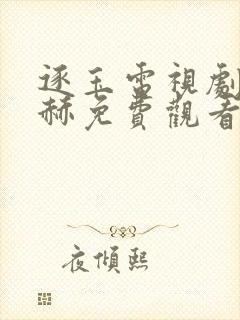 逐玉電視劇
赫免費觀看
夜傾熙